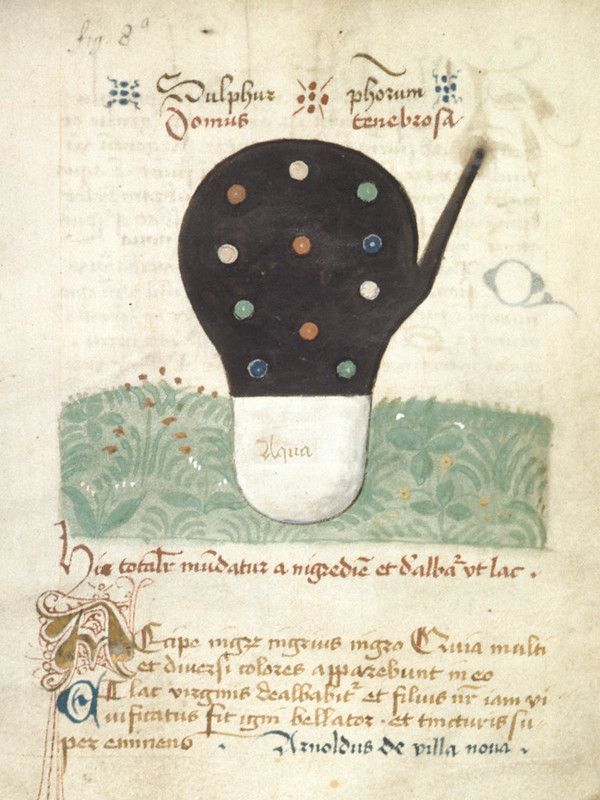 fig. 8ª
Sulphur phōrum
Domus tenebrosa
Aqua
Hic totalr̃ mūdatur a nigrediē et d'albaꝶ vt lac .
Accipe nigrꝫ nigrius nigro Quia multi
et diversi colores apparebunt in eo
lac virginis dealbabitꝶ et filius nr̃ iam vi
vificatus fit igni bellator . et tincturis su
per eminens . Arnoldus de villa nova .